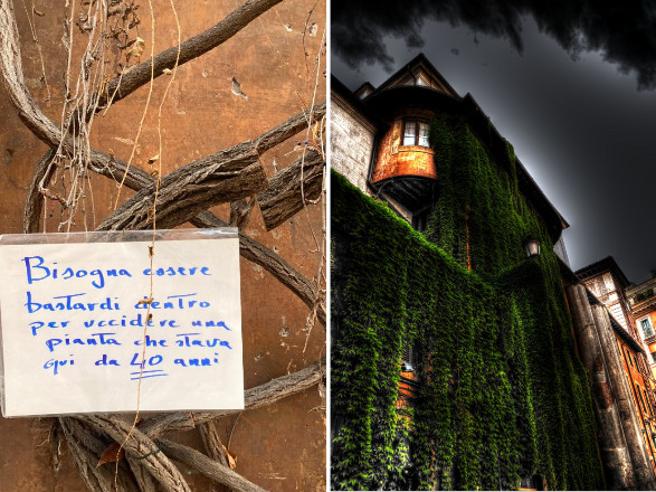 Bisogna essere
bastardi dentro
per uccidere una
pianta che stava
qui da 40 anni